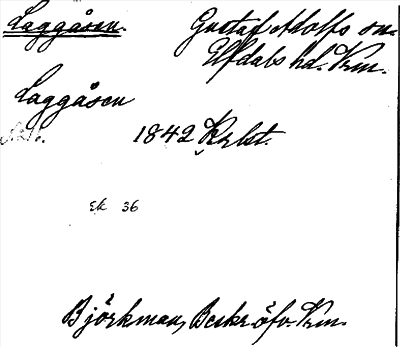 Laggåsen. Gustaf Adolfs sn.
Elfdals hd. Vrm.
Laggåsen
1842 Krbt.
Ek 36
Björkman, Beskr. öfv. Vrm.